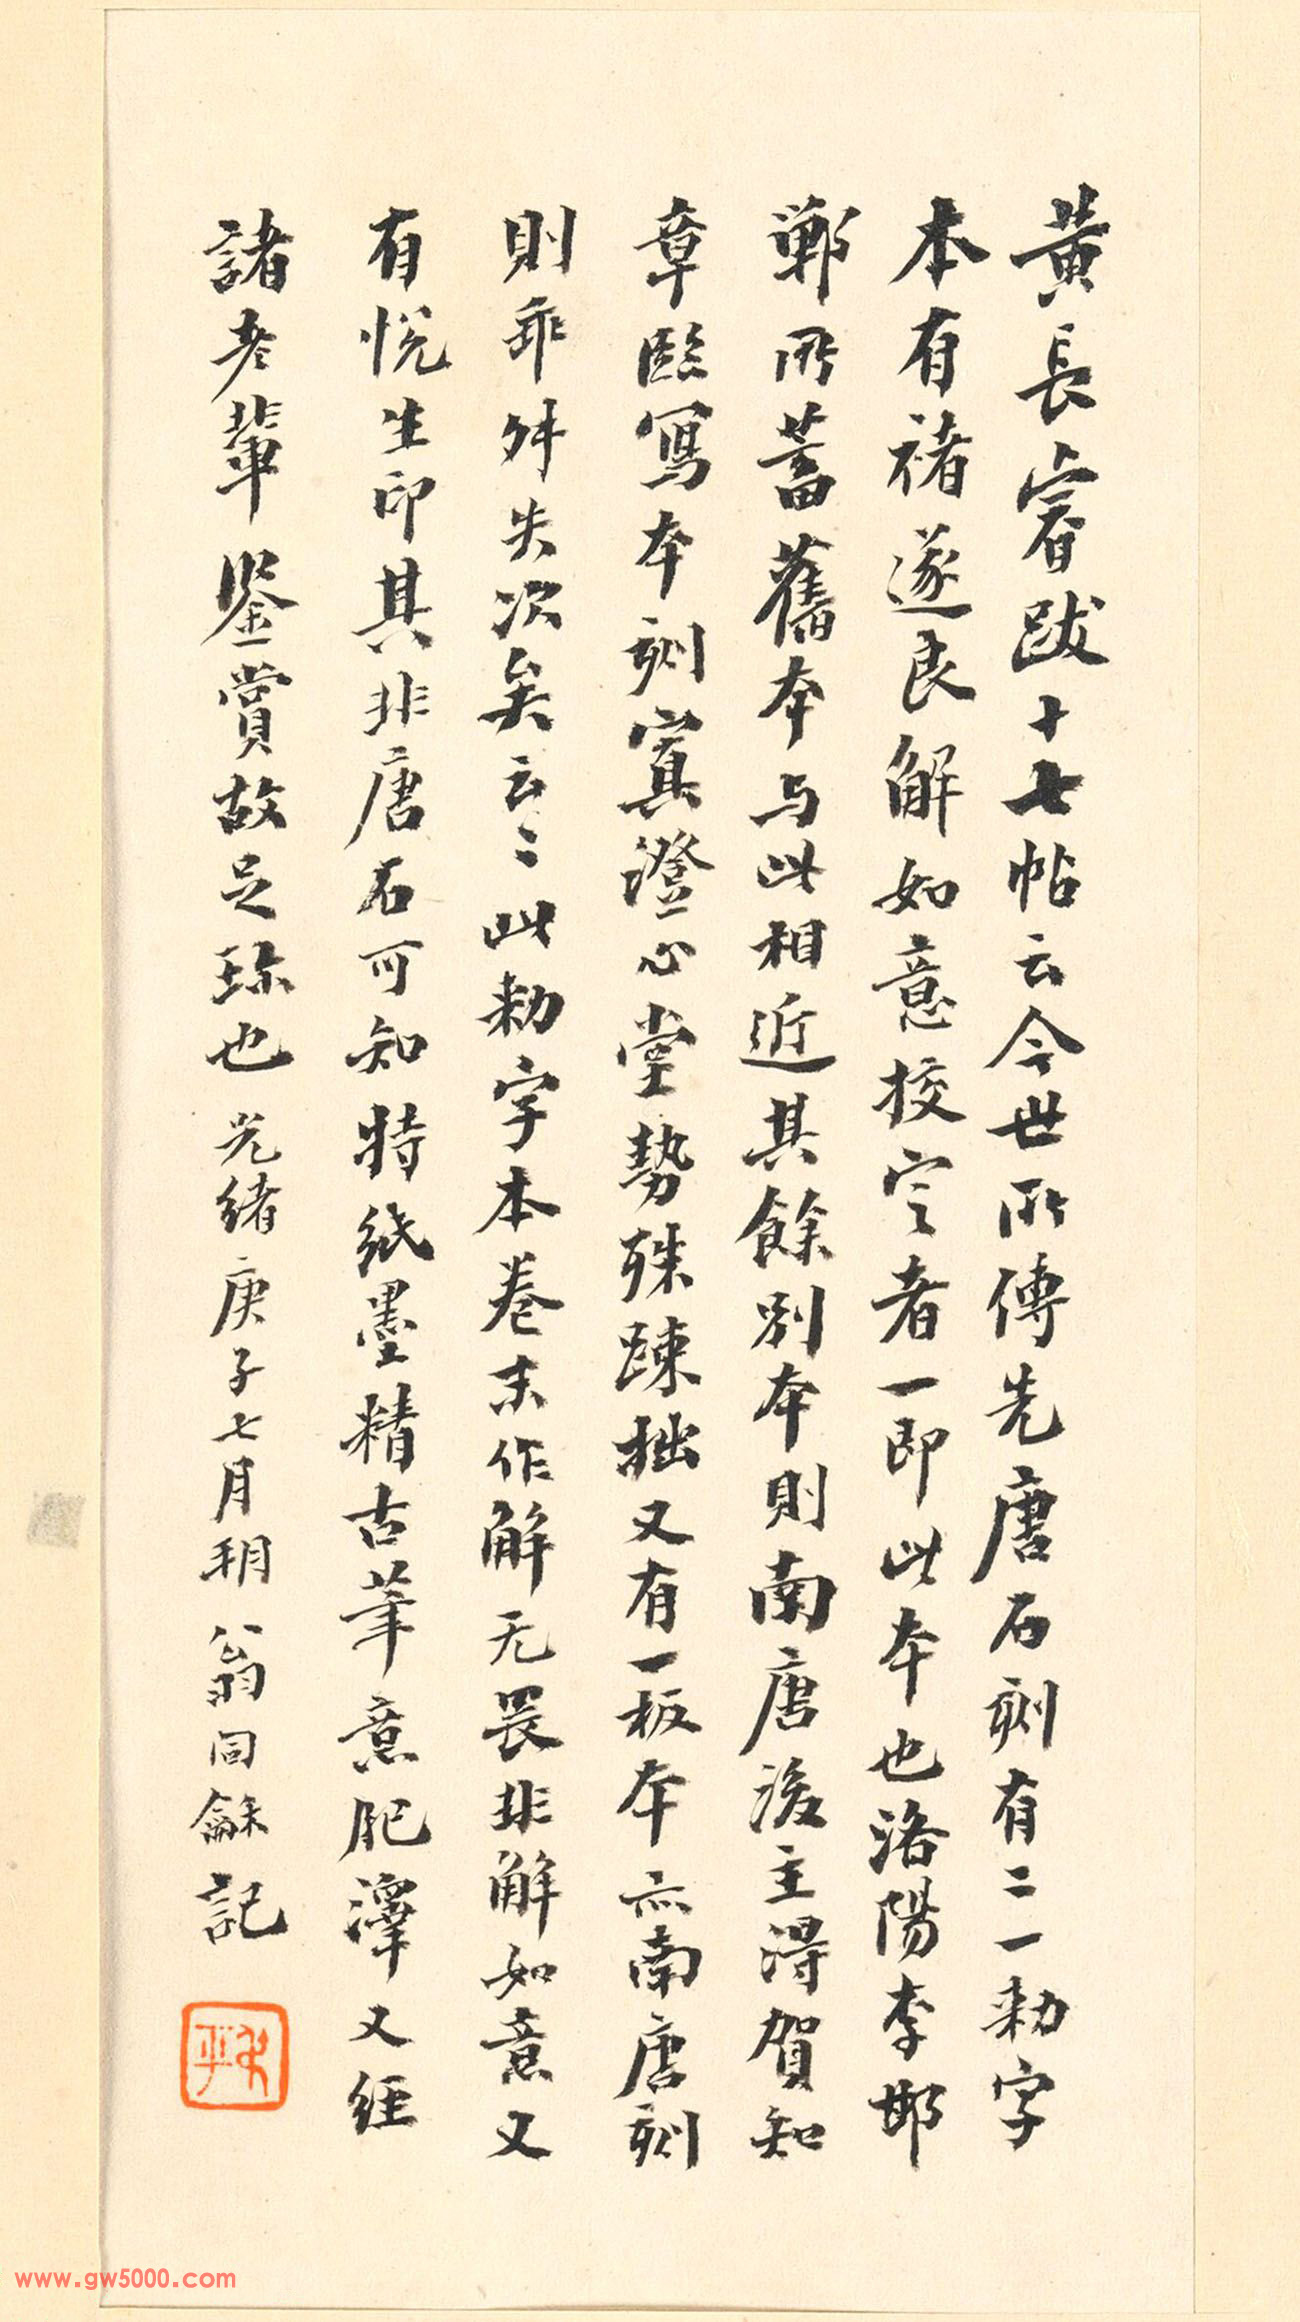 黃長睿跋十七帖云今世所傳先唐石刻有二一勅字
本有褚遂良解如意挍定者一即此本也洛陽李邯
鄲所蓄舊本与此相近其餘別本則南唐後主得賀知
章臨寫本刻寘澄心堂勢殊踈拙又有一板本亦南唐刻
則乖舛失次矣云〻此勅字本卷末作解无畏非解如意又
有悅生印其非唐石可知特紙墨精古筆意肥澤又經
諸老輩鑒賞故足珎也光緒庚子七月朔翁同龢記
叔平
www.gw5000.com